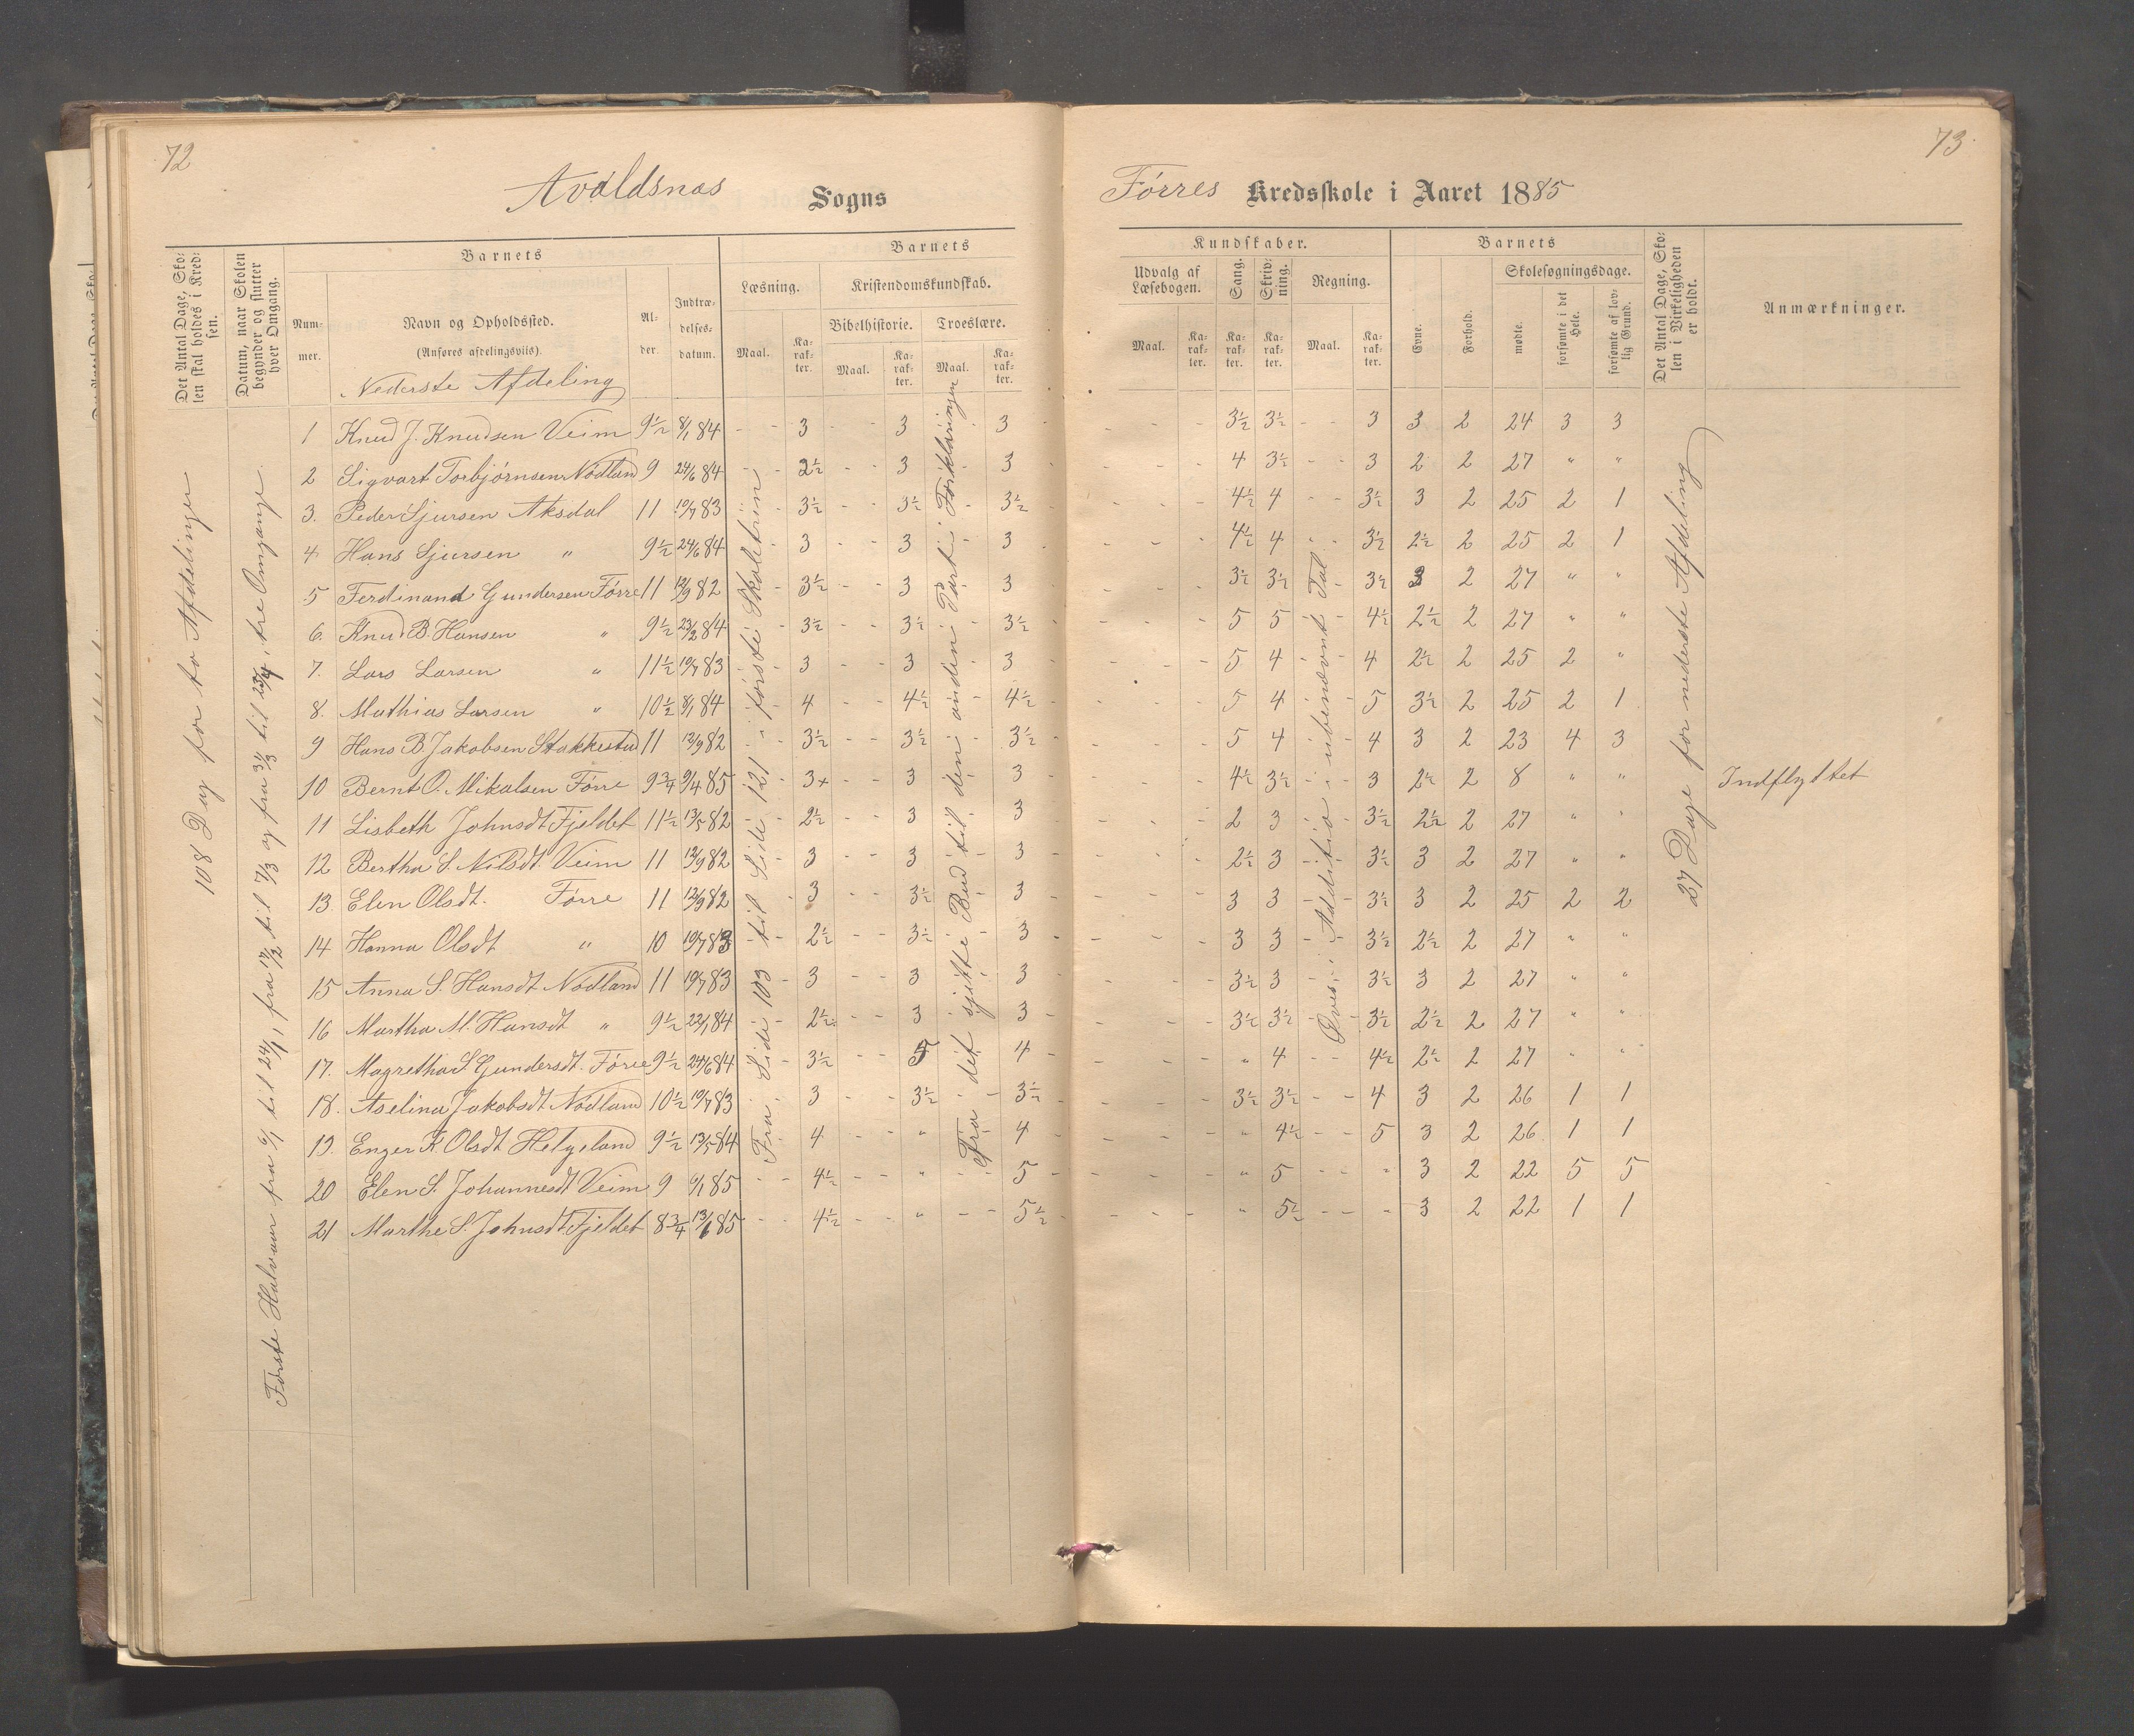 72
Avaldsnæs Sogns
Det Antal Dage, Skolen skal holdes i Kredsen.
Datum, naar Skolen begynder og slutter hver Omgang.
Barnets
Barnets
Nummer.
Navn og Opholdssted.
(Anføres afdelingsviis).
Alder.
Indtrædelsesdatum.
Læsning.
Kristendomskundskab.
Bibelhistorie.
Troeslære.
Maal.
Karakter.
Maal.
Karakter.
Maal.
Karakter.
Nederste Afdeling
108 Dag for to Afdelinger
Første Halvaar fra 6/1 til 24/1, fra 17/2 til 7/3 og fra 31/3 til 23/4, tre Omgange.
Fra Side 103 til Side 121 i første Skoletrin
Fra det sjette Bud til den anden Part i Forklaringen
1 Knud J. Knudsen Veim 9½ 8/1 84 - - 3 - - 3 - 3
2 Sigvart Torbjørnsen Nødland 9 24/6 84 - - 2½ - - 3 - 3
3. Peder Sjursen Aksdal 11 10/7 83 - - 3½ - - 3½ - 3½
4 Hans Sjursen " 9½ 24/6 84 - 3 - - 3 - 3
5 Ferdinand Gundersen Førre 11 12/9 82 - 3½ - - 3 - 3
6. Knud B. Hansen " 9½ 23/2 84 - 3½ - - 3½ - - 3½
7. Lars Larsen " 11½ 10/7 83 - - 3 - - 3 - 3
8. Mathias Larsen " 10½ 8/1 84 - 4 - - 4½ - 4½
9 Hans B. Jakobsen Stakkestad 11 12/9 82 - 3½ - - 3½ - 3½
10 Bernt O. Mikalsen Førre 9¾ 9/4 85 - 3+ - - 3 3
11 Lisbeth Johnsdt Fjeldet 11½ 13/5 82 - - 2½ - 3 - 3
12 Bertha S. Nilsdt Veim 11 12/9 82 - - 3 - - 3 - 3
13. Elen Olsdt. Førre 11 12/9 82 - 3 - - 3½ - 3
14 Hanna Olsdt " 10 10/7 83 - - 2½ - - 3½ - 3
15 Anna S. Hansdt Nødland 11 10/7 83 - 3 - - 3 3
16 Martha M. Hansdt " 9½ 22/1 84 - 2½ - - 3 - 3
17. Magretha S Gundersdt. Førre 9½ 24/6 84 - 3½ - - 5 4
18. Aselina Jakobsdt Nødland 10½ 10/7 83 - 3 - - 3½ - - 3½
19. Enger K. Olsdt Helgeland 9½ 13/5 84 - 4 - - " - 4
20 Elen S. Johannesdt Veim 9 6/1 85 - - 4½ - - " - 5
21 Marthe S. Johnsdt. Fjeldet 8¾ 13/1 85 - - 4½ - - " - - 5½
73.
Førres Kredsskole i Aaret 1885
Kundskaber.
Barnets
Udvalg af Læsebogen.
Sang.
Skrivning.
Regning.
Skolesøgningsdage.
Maal.
Karakter.
Karakter.
Karakter.
Maal.
Karakter.
Evne.
Forhold.
mødte.
forsømte i det Hele.
forsømte af lovlig Grund.
Det Antal Dage, Skolen i Virkeligheden er holdt.
Anmærkninger.
Øves i Addition i ubenævnt Tal
27 Dage for nederste Afdeling
- - - 3½ 3½ - - 3 3 2 24 3 3
- - - 4 3½ - - 3 2 2 27 " "
- - - 4½ 4 - - 3½ 3 2 25 2 1
- - - 4½ 4 - - 3½ 2½ 2 25 2 1
- - - 3½ 3½ - 3½ 3 2 27 " "
- - - 5 5 - - 4½ 2½ 2 27 " "
- - - 5 4 - - 4 2½ 2 25 2 "
- - - 5 4 - - 5 3½ 2 25 2 1
- - - 5 4 - - 4 3 2 23 4 3
- - - 4½ 3½ - - 3 2½ 2 8 " " Indflyttet
- - - 2 3 - - 3½ 2½ 2 27 " "
- - - 2½ 3 - - 3½ 3 2 27 " "
- - - 3 3 - - 3½ 3 2 25 2 2
- - - 3 3 - - 3½ 2½ 2 27 " "
- - - 3½ 3 - 3½ 3 2 27 " "
- - - 3½ 3½ - - 3½ 2½ 2 27 " "
- - - " 4 - - 4½ 2½ 2 27 " "
- - - 3½ 3½ - - 4 3 2 26 1 1
- - - " 4½ - - 5 3 2 26 1 1
- - - " 5 - - " 3 2 22 5 5
- - - " 5½ - - " 3 2 22 1 1